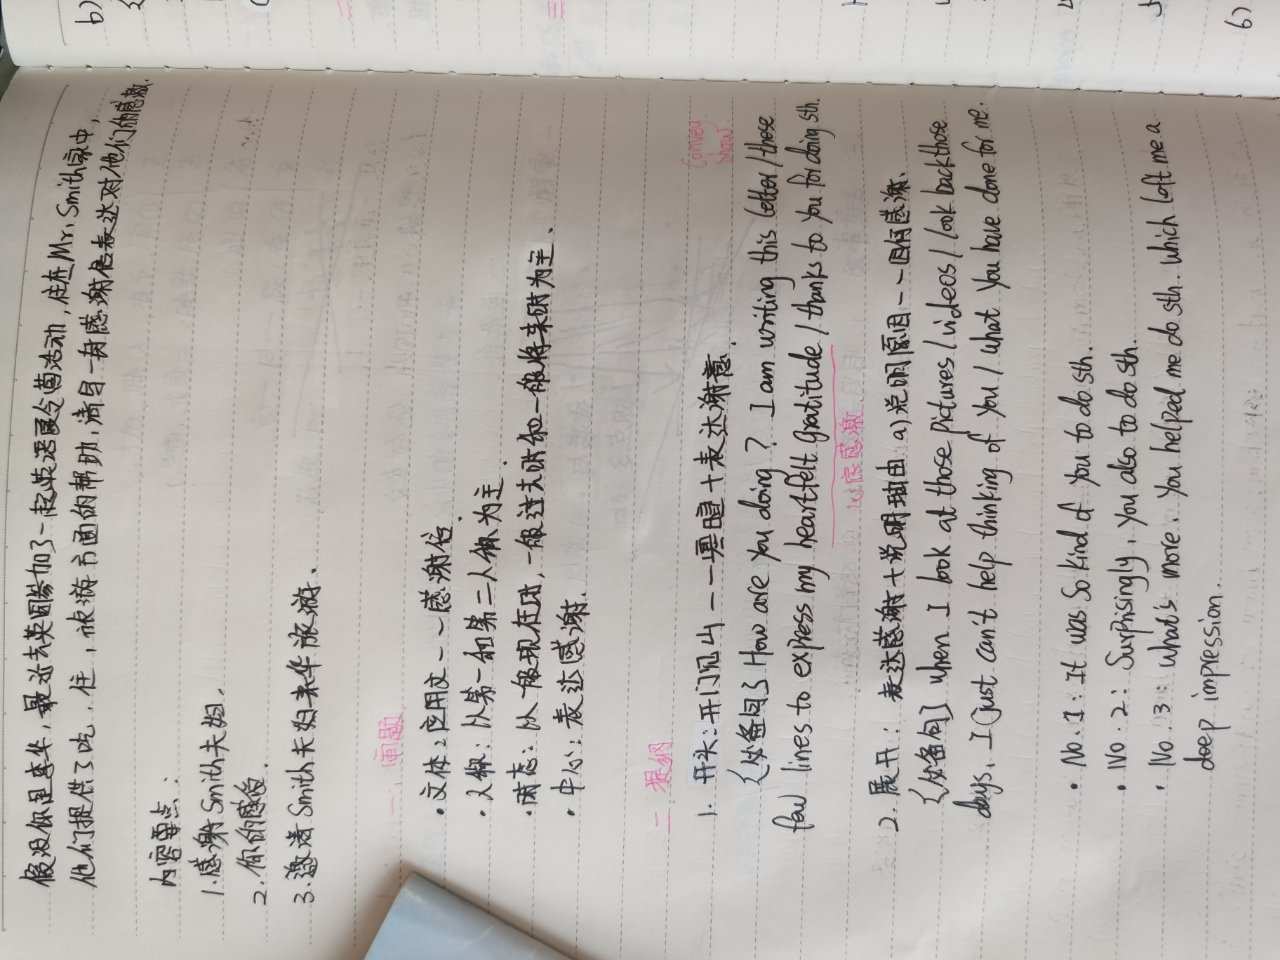 假设你是李华,最近去英国参加了一段英语夏令营活动,住在Mr. Smith家中,
他们提供了吃,住,旅游方面的帮助,请写一封感谢信表达对他们的感激.
内容要点:
1.感谢Smith夫妇.
2.你的感受.
3.邀请Smith夫妇来华旅游.
一、审题
·文体:应用文--感谢信.
·人称:以第一和第二人称为主.
·时态:以一般现在时,一般过去时和一般将来时为主.
·中心:表达感谢.
二 提纲
convey
show
1. 开头:开门见山--寒暄+表达谢意.
{必备句} How are you doing? I am writing this letter/those
few lines to express my heartfelt gratitude/thanks to you for doing sth.
对...感激
2.展开: 表达感谢+说明理由 a)说明原因--因何感激.
{必备句} when I look at those pictures/videos/look back those
days, I just can't help thinking of you/what you have done for me.
· No.1: It was so kind of you to do sth.
· No.2: Surprisingly, you also to do sth.
· No.3: what's more, you helped me do sth. which left me a
deep impression.
b)
6)